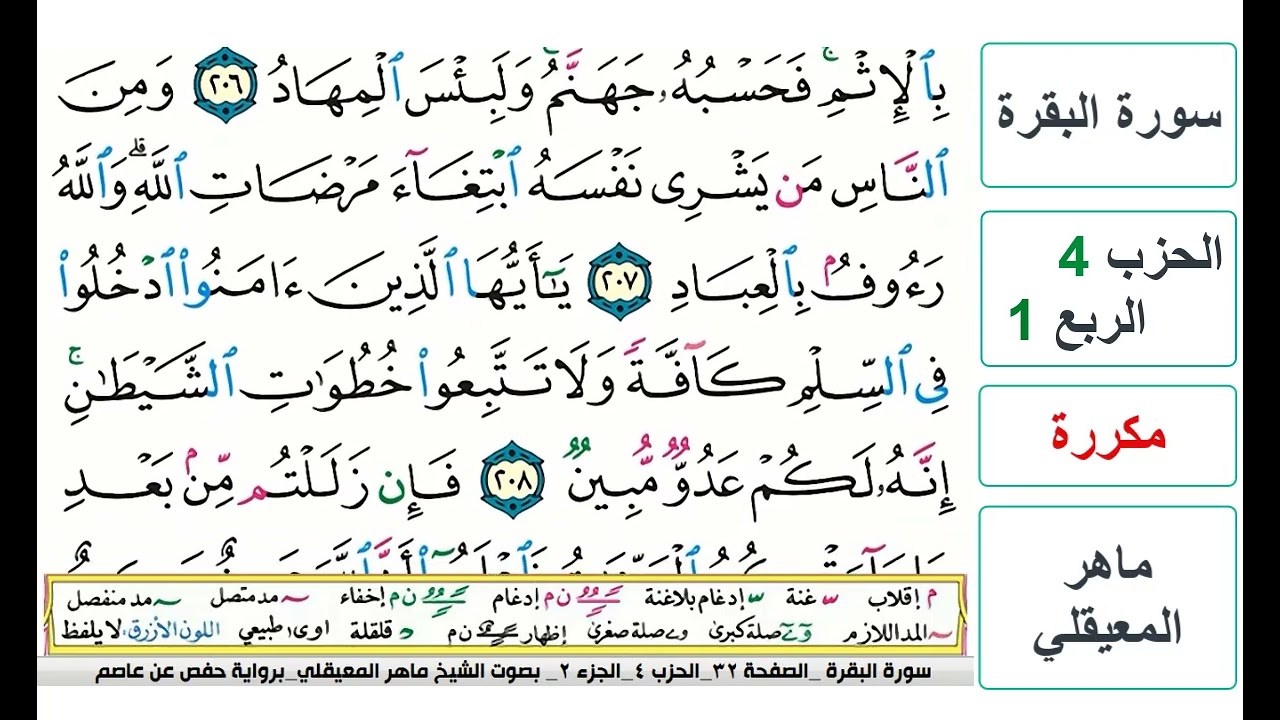 بِٱلْإِثْمِ ۚ فَحَسْبُهُۥ جَهَنَّمُ ۚ وَلَبِئْسَ ٱلْمِهَادُ ٢٠٦ وَمِنَ
ٱلنَّاسِ مَن يَشْرِى نَفْسَهُ ٱبْتِغَآءَ مَرْضَاتِ ٱللَّهِ ۗ وَٱللَّهُ
رَءُوفٌۢ بِٱلْعِبَادِ ٢٠٧ يَٰٓأَيُّهَا ٱلَّذِينَ ءَامَنُوا۟ ٱدْخُلُوا۟
فِى ٱلسِّلْمِ كَآفَّةً وَلَا تَتَّبِعُوا۟ خُطُوَٰتِ ٱلشَّيْطَٰنِ ۚ
إِنَّهُۥ لَكُمْ عَدُوٌّ مُّبِينٌ ٢٠٨ فَإِن زَلَلْتُم مِّنۢ بَعْدِ
م إقلاب ّ غنة ّ إدغام بلاغنة ن م إدغام ن م إخفاء ~ مد متصل ~ مد منفصل
~ المد اللازم صلة كبرى صلة صغرى إظهار ن م قلقلة اوى طبيعي اللون الأزرق: لا يلفظ
سورة البقرة _الصفحة ٣٢_الحزب ٤_الجزء ٢_ بصوت الشيخ ماهر المعيقلي_برواية حفص عن عاصم
سورة البقرة
الحزب 4
الربع 1
مكررة
ماهر
المعيقلي